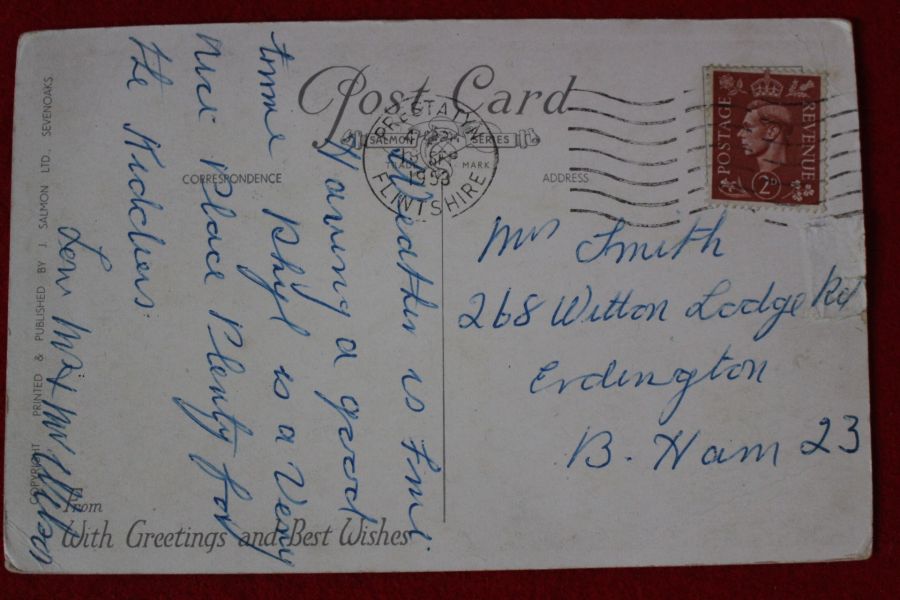 Post Card
SALMON SERIES
TRADE MARK
CORRESPONDENCE
ADDRESS
PRESTATYN
1953
FLINTSHIRE
POSTAGE
REVENUE
2D
Weather is Fine
Having a good
time Rhyl is a Very
Nice Place Plenty for
the Kiddies
Love Mr & Mrs
Mrs Smith
268 Witton Lodge Rd
Erdington
B. Ham 23
From
With Greetings and Best Wishes
COPYRIGHT PRINTED & PUBLISHED BY J. SALMON LTD., SEVENOAKS